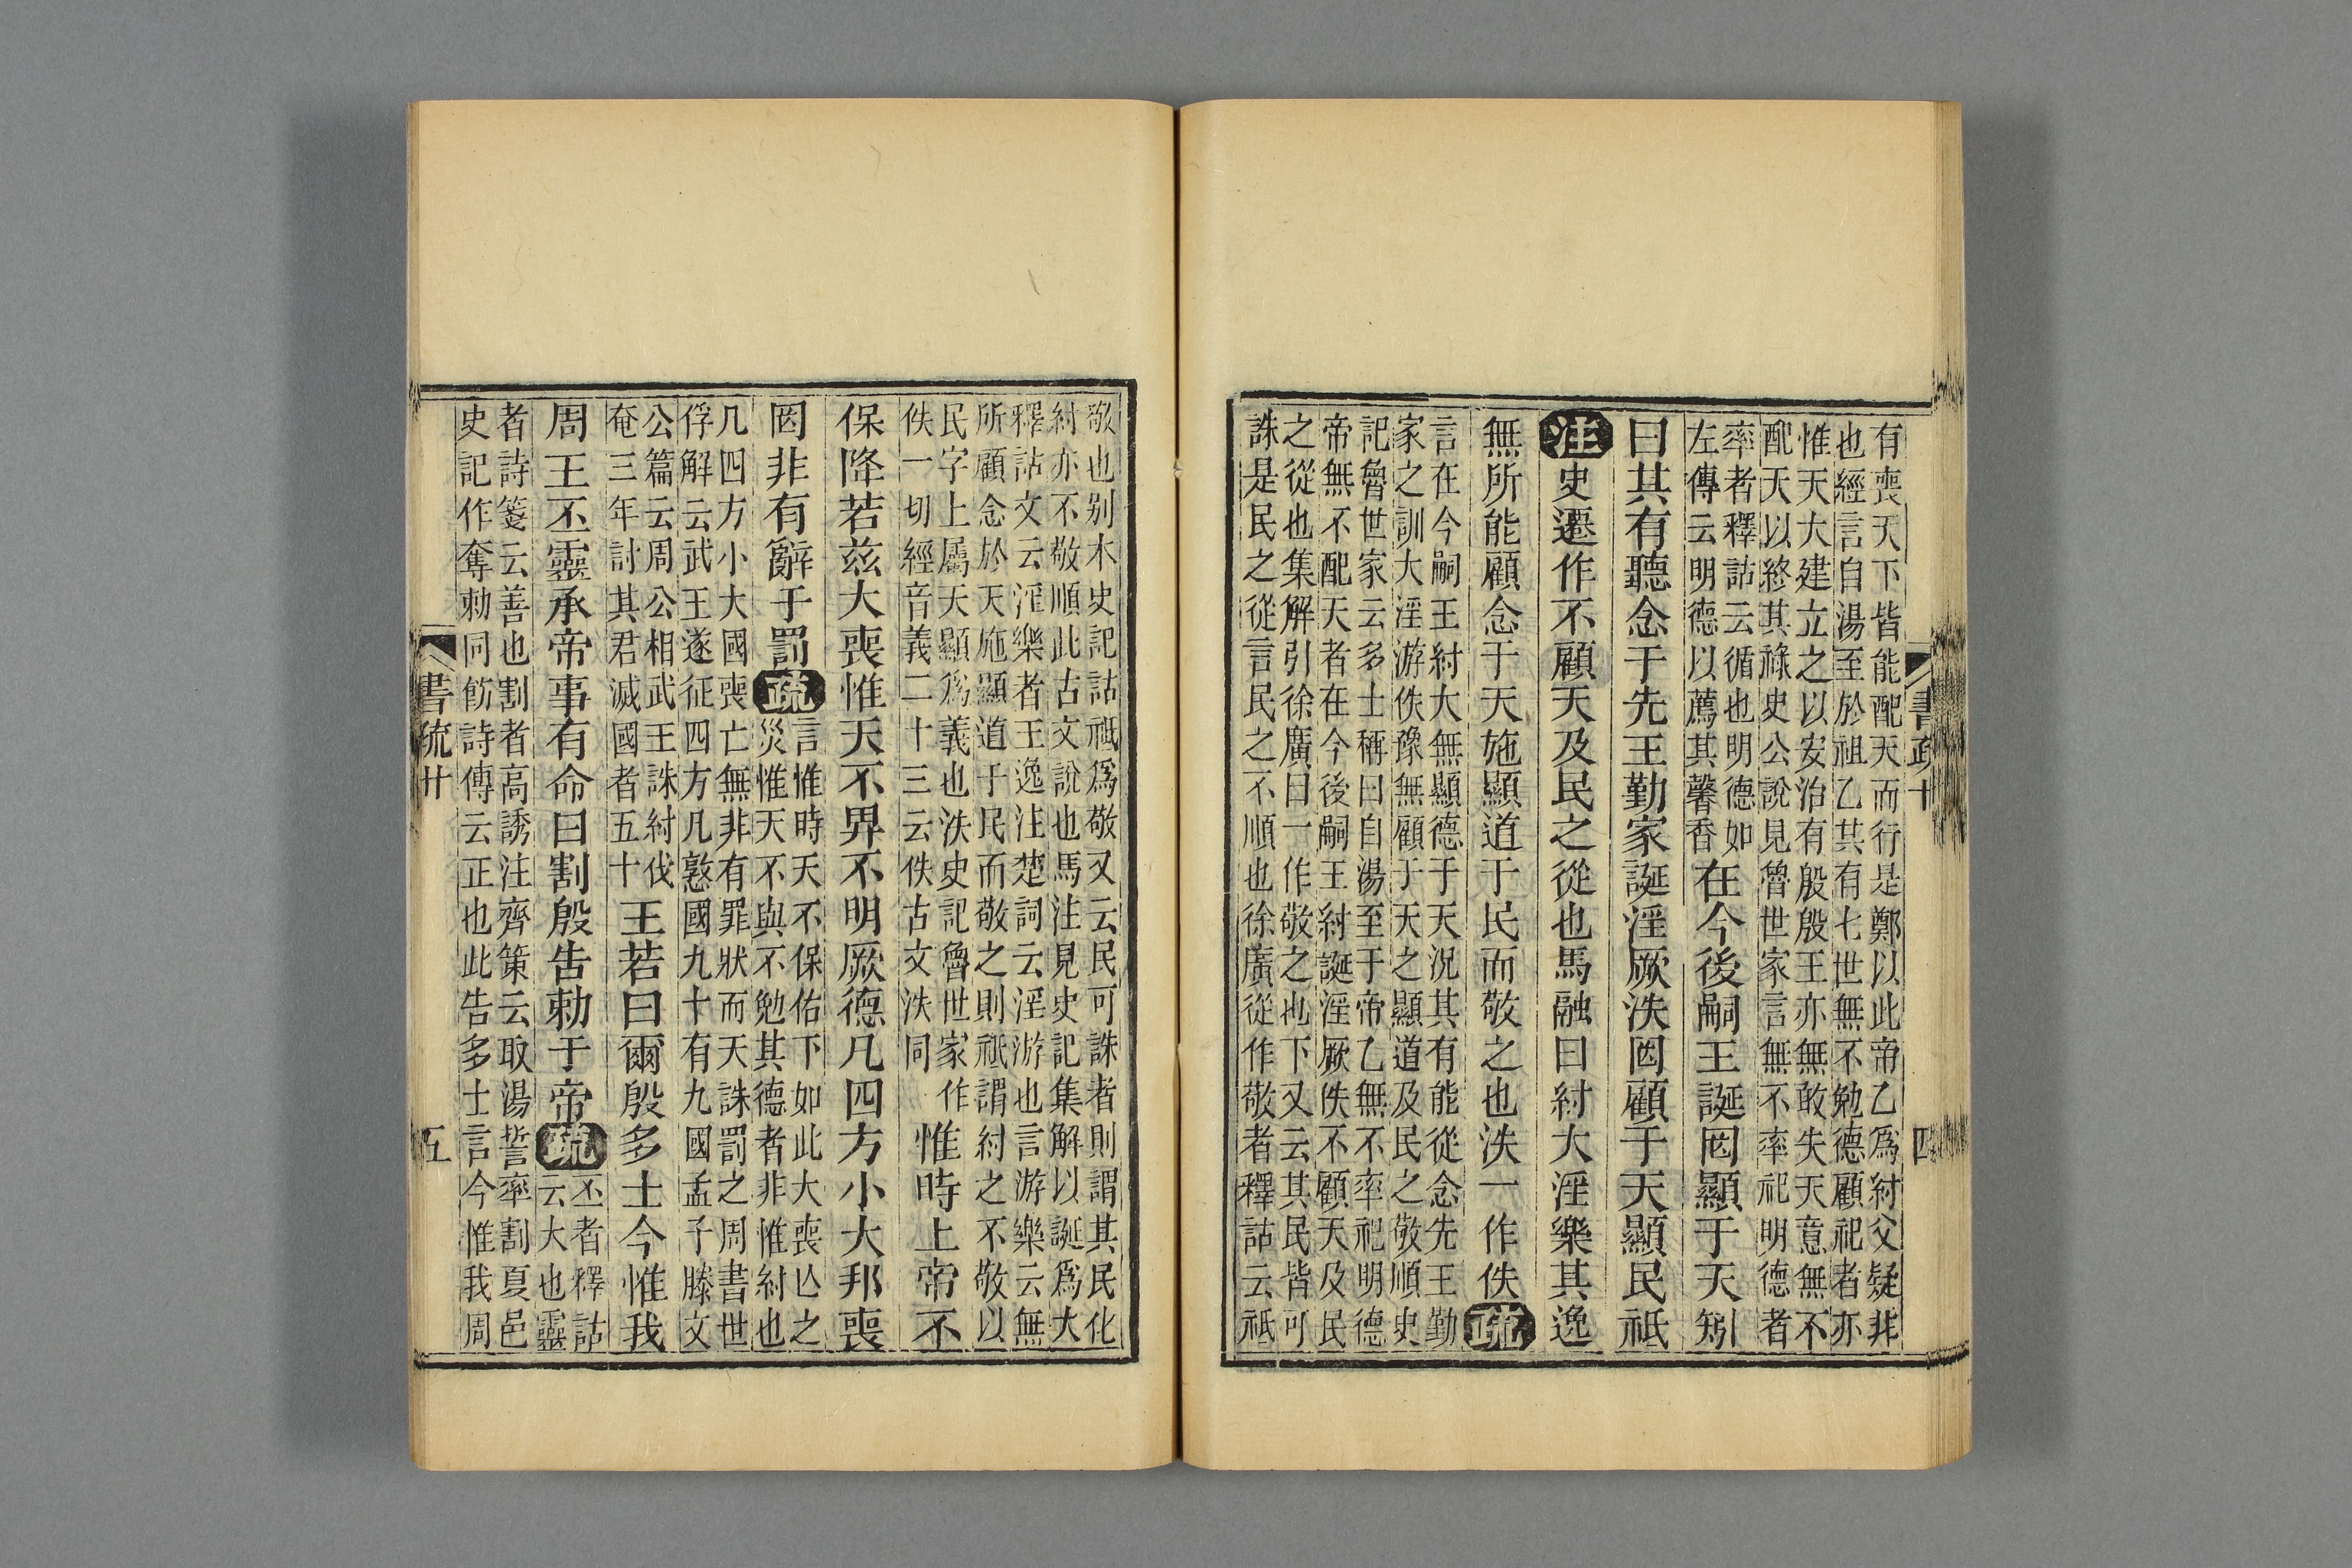 有喪天下皆能配天而行是鄭以此帝乙爲紂父疑非
也經言自湯至於祖乙其有七世無不勉德顧祀者亦
惟天大建立之以安治有殷殷王亦無敢失天意無不
配天以終其祿史公說見魯世家言無不率祀明德者
率者釋詁云循也明德如
左傳云明德以薦其馨香
在今後嗣王誕罔顯于天矧
曰其有聽念于先王勤家誕淫厥泆罔顧于天顯民祇
注史遷作不顧天及民之從也馬融曰紂大淫樂其逸
無所能顧念于天施顯道于民而敬之也泆一作佚疏
言在今嗣王紂大無顯德于天況其有能從念先王勤
家之訓大淫游佚豫無顧于天之顯道及民之敬順史
記魯世家云多士稱曰自湯至于帝乙無不率祀明德
帝無不配天者在今後嗣王紂誕淫厥佚不顧天及民
之從也集解引徐廣曰一作敬之也下又云其民皆可
誅是民之從言民之不順也徐廣從作敬者釋詁云祇
敬也别木史記詁祗爲敬又云民可誅者則謂其民化
紂亦不敬順此古文說也馬注見史記集解以誕爲大
釋詁文云淫樂者王逸注楚詞云淫游也言游樂云無
所顧念於天施顯道于民而敬之則祗謂紂之不敬以
民字上屬天顯爲義也泆史記魯世家作
佚一切經音義二十三云佚古文泆同
惟時上帝不
保降若兹大喪惟天不畀不明厥德凡四方小大邦喪
罔非有辭于罰疏
言惟時天不保佑下如此大喪亡之
災惟天不與不勉其德者非惟紂也
凡四方小大國喪亡無非有罪狀而天誅罰之周書世
俘解云武王遂征四方凡憝國九十有九國孟子滕文
公篇云周公相武王誅紂伐
奄三年討其君滅國者五十
王若曰爾殷多士今惟我
周王丕靈承帝事有命曰割殷告勅于帝疏
丕者釋詁
云大也靈
者詩箋云善也割者高誘注齊策云取湯誓率割夏邑
史記作奪勅同飭詩傳云正也此告多士言今惟我周
書疏廿
五